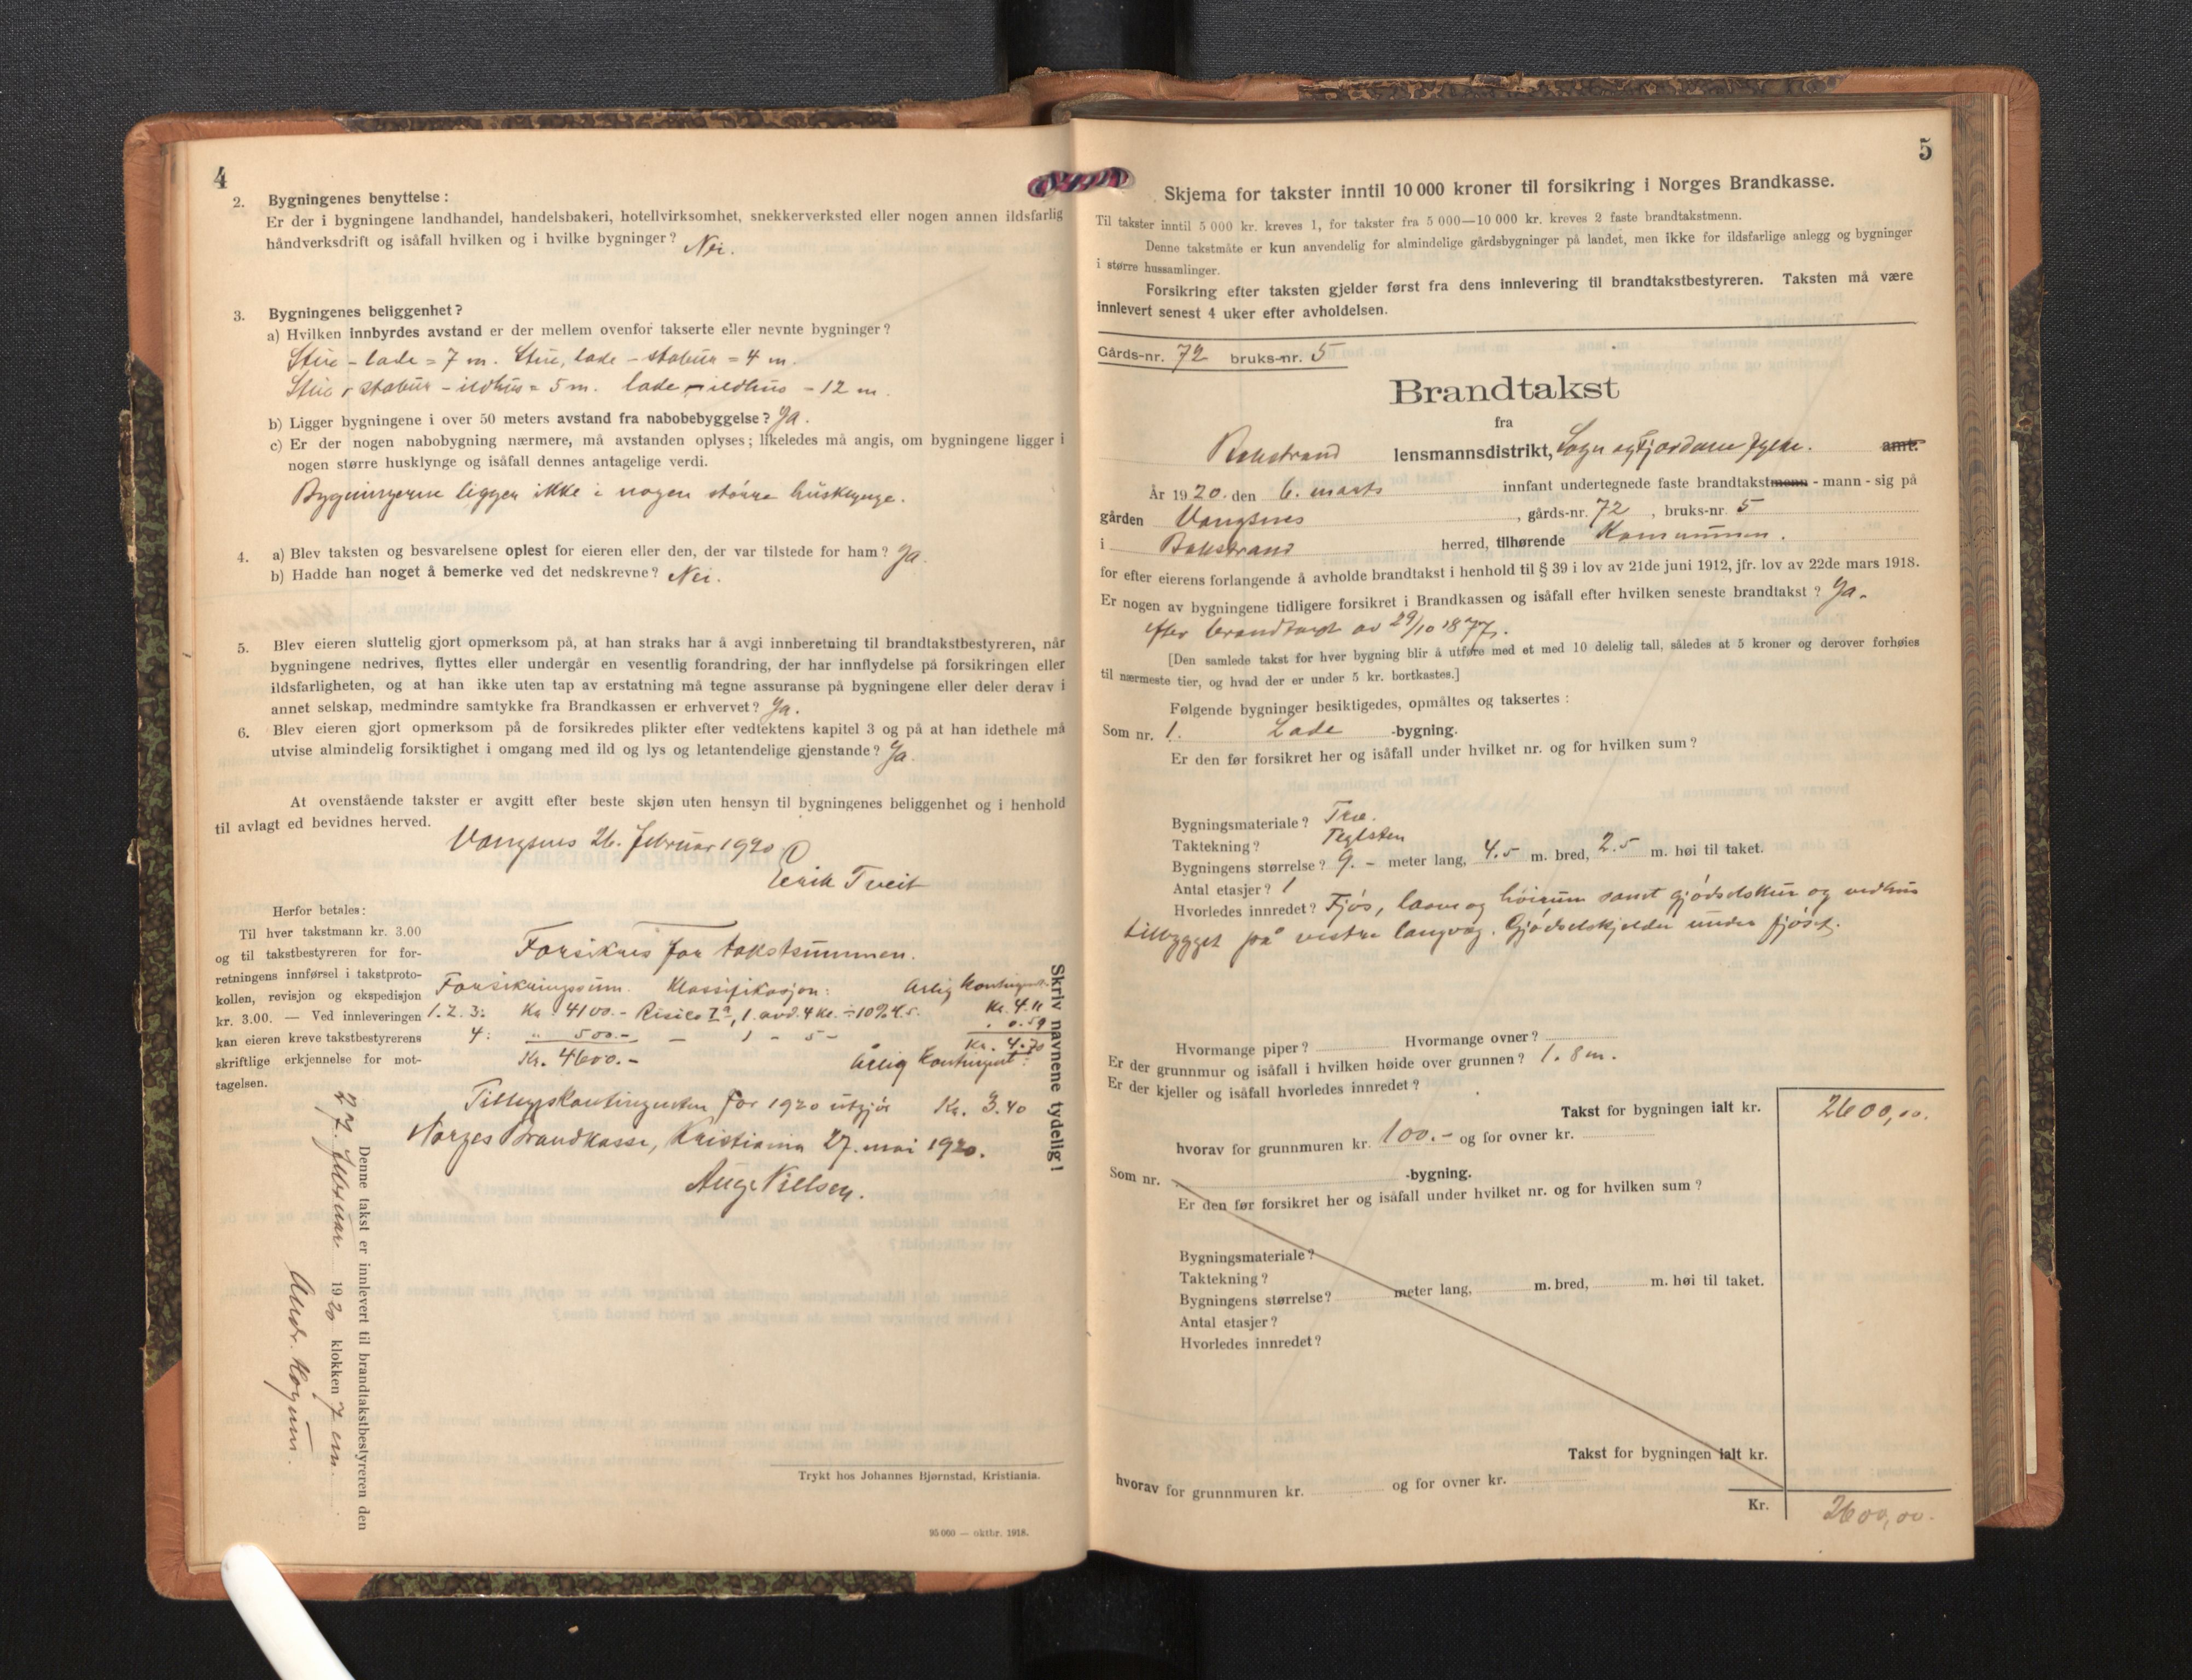 4
2. Bygningenes benyttelse :
Er der i bygningene landhandel, handelsbakeri, hotellvirksomhet, snekkerverksted eller nogen annen ildsfarlig
håndverksdrift og isåfall hvilken og i hvilke bygninger? Nei.
3. Bygningenes beliggenhet?
a) Hvilken innbyrdes avstand er der mellem ovenfor takserte eller nevnte bygninger?
Stue - lade = 7 m. Stue, lade - stabur = 4 m.
Stue, stabur - ildhus = 5 m. lade - ildhus - 12 m.
b) Ligger bygningene i over 50 meters avstand fra nabobebyggelse? Ja.
c) Er der nogen nabobygning nærmere, må avstanden oplyses; likeledes må angis, om bygningene ligger i
nogen større husklynge og isåfall dennes antagelige verdi.
Bygningerne ligger ikke i nogen större husklynge.
4. a) Blev taksten og besvarelsene oplest for eieren eller den, der var tilstede for ham? Ja.
b) Hadde han noget å bemerke ved det nedskrevne? Nei.
5. Blev eieren sluttelig gjort opmerksom på, at han straks har å avgi innberetning til brandtakstbestyreren, når
bygningene nedrives, flyttes eller undergår en vesentlig forandring, der har innflydelse på forsikringen eller
ildsfarligheten, og at han ikke uten tap av erstatning må tegne assuranse på bygningene eller deler derav i
annet selskap, medmindre samtykke fra Brandkassen er erhvervet? Ja.
6. Blev eieren gjort opmerksom på de forsikredes plikter efter vedtektens kapitel 3 og på at han idethele må
utvise almindelig forsiktighet i omgang med ild og lys og letantendelige gjenstande? Ja.
At ovenstående takster er avgitt efter beste skjøn uten hensyn til bygningenes beliggenhet og i henhold
til avlagt ed bevidnes herved.
Vangsnes 26. Februar 1920
Eirik Tveit
Herfor betales:
Til hver takstmann kr. 3.00
og til takstbestyreren for for-
retningens innførsel i takstproto-
kollen, revisjon og ekspedisjon
kr. 3.00. — Ved innleveringen
kan eieren kreve takstbestyrerens
skriftlige erkjennelse for mot-
tagelsen.
Forsikres for takstsummen.
Forsikringssum. Klassifikasjon: Årlig kontingent.
1. 2. 3: Kr. 4100.- Risico I a, 1. avd. 4 kl. ÷ 10% Kr. 4.11
4: " 500.- - 1 - 5 - " 0.59
Kr. 4600.- Årlig kontingent: Kr. 4.70
Tilleggskontingenten for 1920 utgjör Kr. 3.40
Norges Brandkasse, Kristiania 27. mai 1920.
Aug. Nielsen.
Skriv navnene tydelig!
Denne takst er innlevert til brandtakstbestyreren den
27. Februar 1920 klokken 7 em.
Andr. Hopum.
Trykt hos Johannes Bjørnstad, Kristiania.
95 000 — oktbr. 1918.
5
Skjema for takster inntil 10 000 kroner til forsikring i Norges Brandkasse.
Til takster inntil 5 000 kr. kreves 1, for takster fra 5 000—10 000 kr. kreves 2 faste brandtakstmenn.
Denne takstmåte er kun anvendelig for almindelige gårdsbygninger på landet, men ikke for ildsfarlige anlegg og bygninger
i større hussamlinger.
Forsikring efter taksten gjelder først fra dens innlevering til brandtakstbestyreren. Taksten må være
innlevert senest 4 uker efter avholdelsen.
Gårds-nr. 72 bruks-nr. 5
Brandtakst
fra
Balestrand lensmannsdistrikt, Sogn og Fjordane fylke. amt.
År 1920 den 6. marts innfant undertegnede faste brandtakstmenn - mann - sig på
gården Vangsnes, gårds-nr. 72, bruks-nr. 5
i Balestrand herred, tilhørende Kommunen.
for efter eierens forlangende å avholde brandtakst i henhold til § 39 i lov av 21de juni 1912, jfr. lov av 22de mars 1918.
Er nogen av bygningene tidligere forsikret i Brandkassen og isåfall efter hvilken seneste brandtakst? Ja.
efter brandtaxt av 29/10 1877.
[Den samlede takst for hver bygning blir å utføre med et med 10 delelig tall, således at 5 kroner og derover forhøies
til nærmeste tier, og hvad der er under 5 kr. bortkastes.]
Følgende bygninger besiktigedes, opmåltes og taksertes :
Som nr. 1. Lade -bygning.
Er den før forsikret her og isåfall under hvilket nr. og for hvilken sum?
Bygningsmateriale? Træ.
Taktekning? Teglsten
Bygningens størrelse? 9. - meter lang, 4.5 m. bred, 2.5 m. høi til taket.
Antal etasjer? 1
Hvorledes innredet? Fjös, laave og höirum samt gjödselskur og vedhus
tilbygget på vestre langvæg. Gjödselskjelder under fjöset.
Hvormange piper? Hvormange ovner?
Er der grunnmur og isåfall i hvilken høide over grunnen? 1.8 m.
Er der kjeller og isåfall hvorledes innredet?
Takst for bygningen ialt kr. 2600,00.
hvorav for grunnmuren kr. 100.- og for ovner kr.
Som nr. -bygning.
Er den før forsikret her og isåfall under hvilket nr. og for hvilken sum?
Bygningsmateriale?
Taktekning?
Bygningens størrelse? meter lang, m. bred, m. høi til taket.
Antal etasjer?
Hvorledes innredet?
Takst for bygningen ialt kr.
hvorav for grunnmuren kr. og for ovner kr.
Kr. 2600,00.